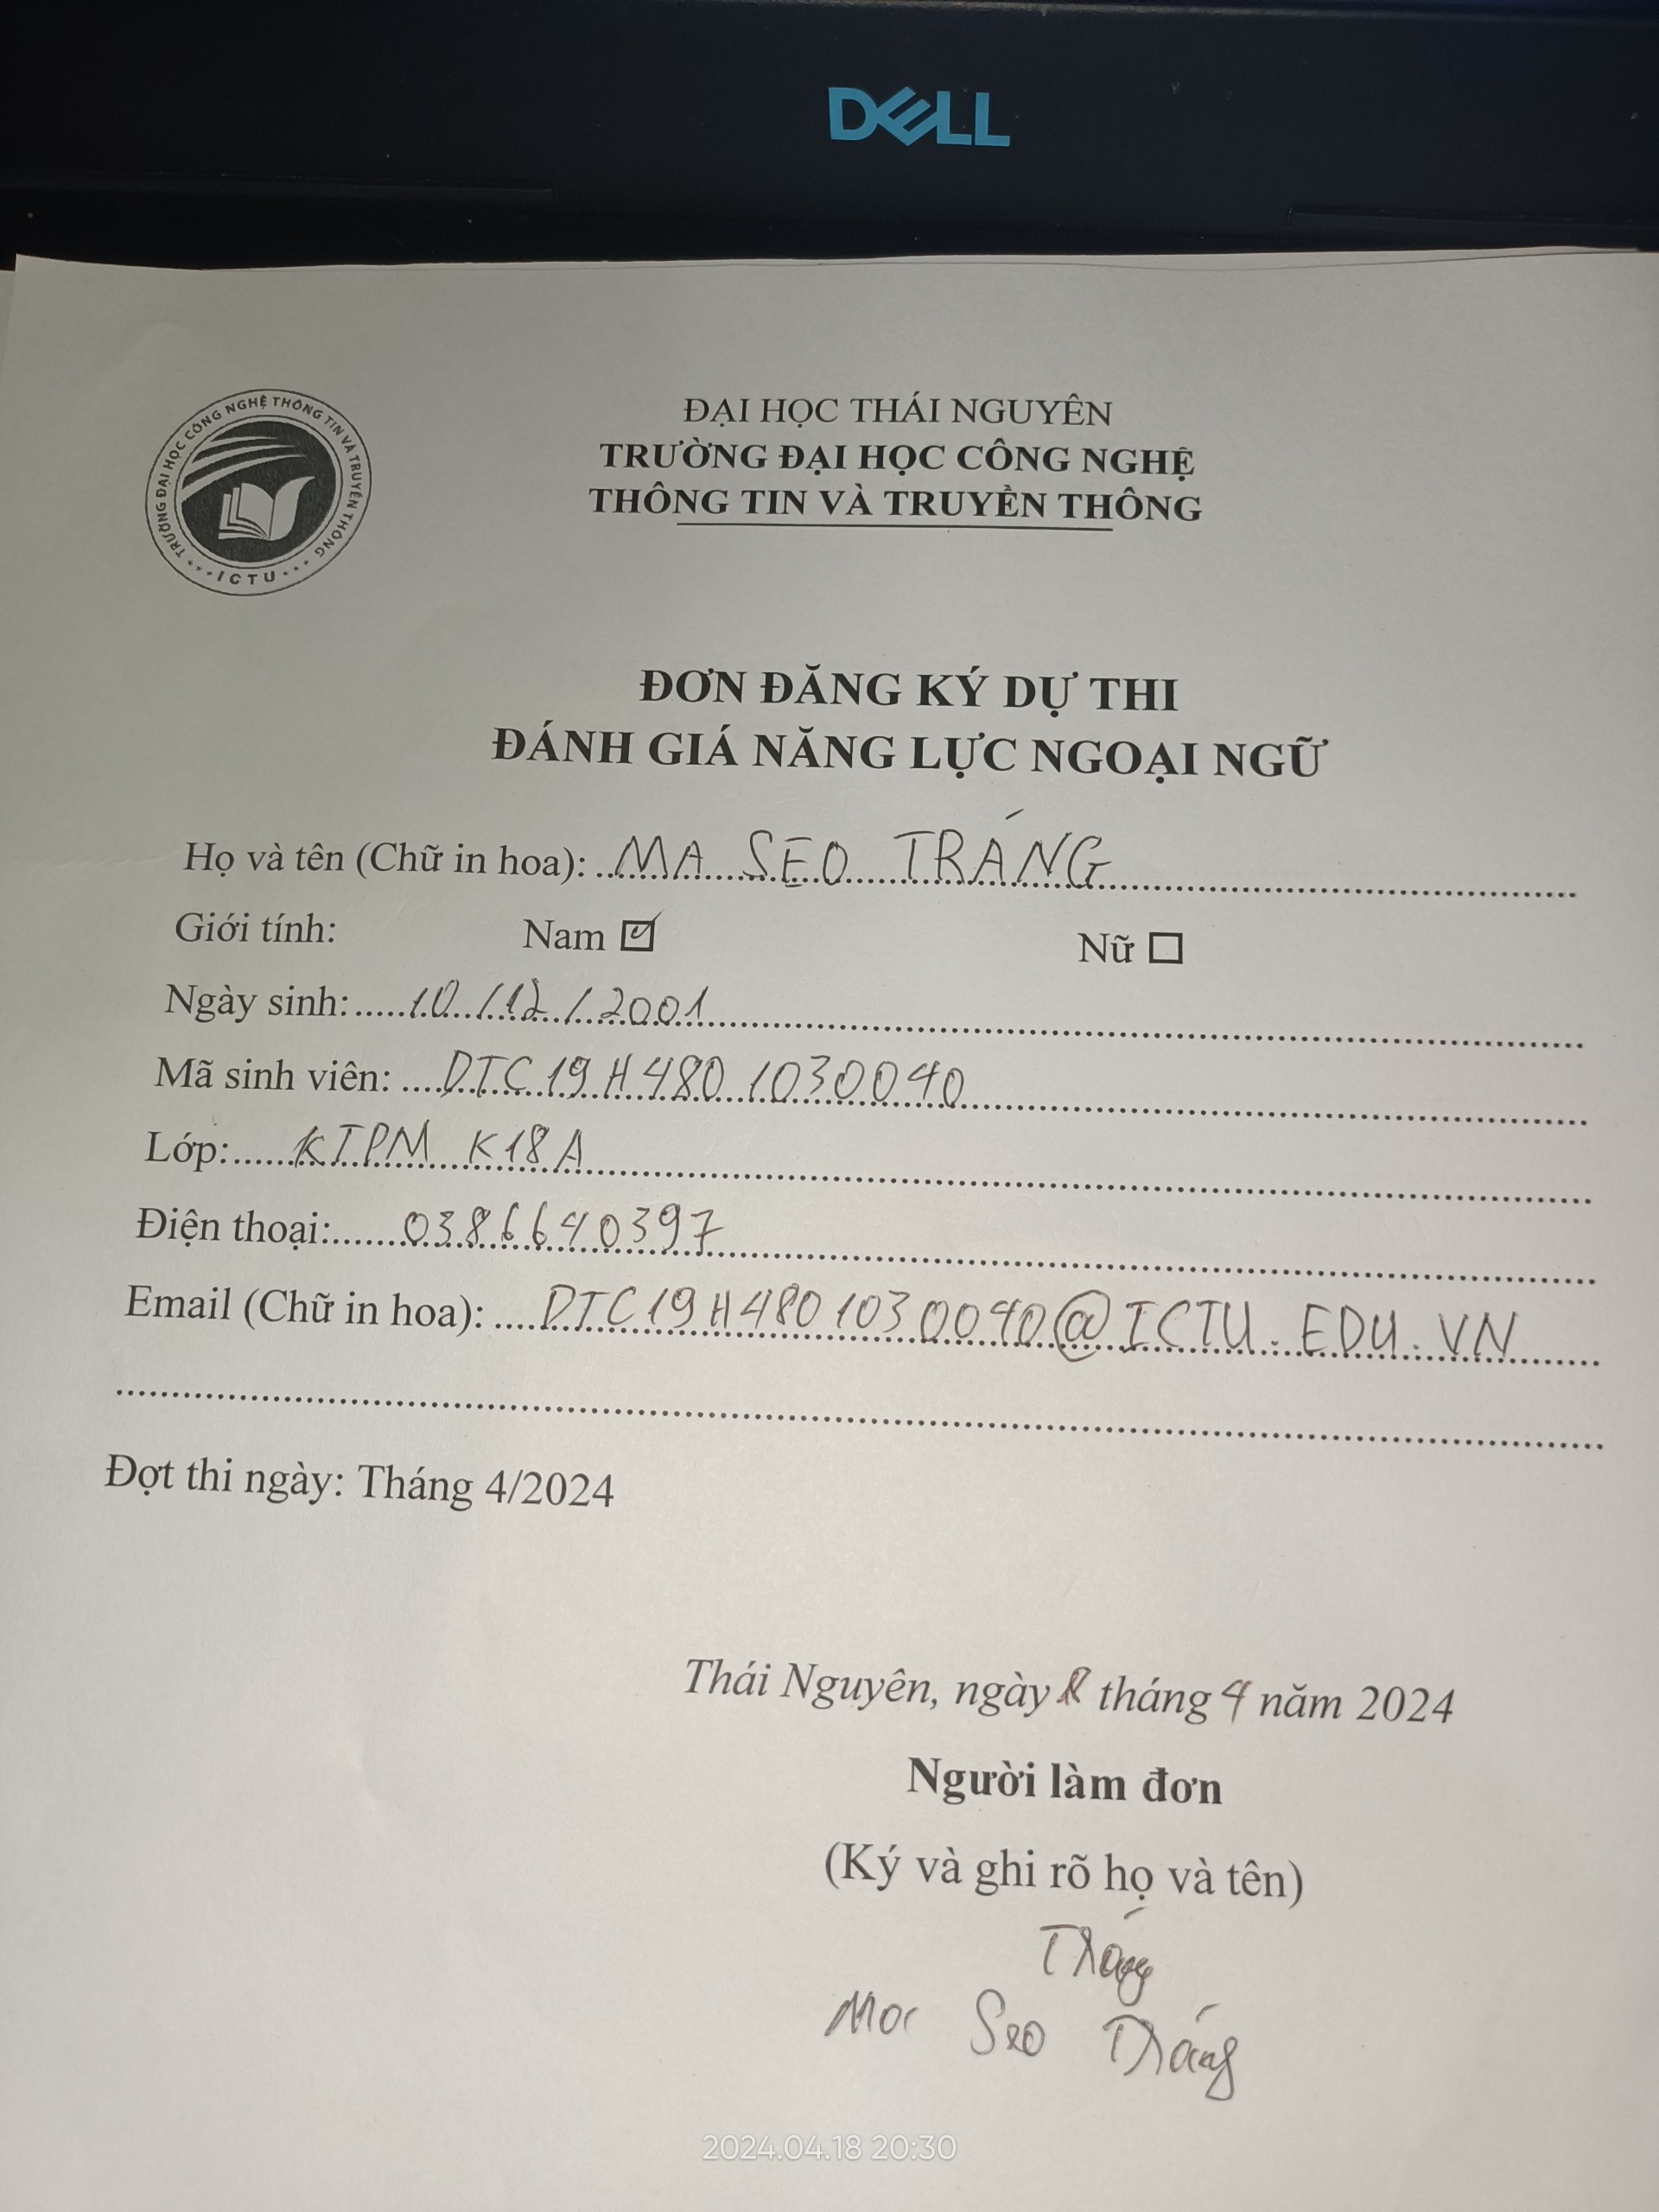 DELL
TRƯỜNG ĐẠI HỌC CÔNG NGHỆ THÔNG TIN VÀ TRUYỀN THÔNG
ICTU
ĐẠI HỌC THÁI NGUYÊN
TRƯỜNG ĐẠI HỌC CÔNG NGHỆ
THÔNG TIN VÀ TRUYỀN THÔNG
ĐƠN ĐĂNG KÝ DỰ THI
ĐÁNH GIÁ NĂNG LỰC NGOẠI NGỮ
Họ và tên (Chữ in hoa): MA SEO TRÁNG
Giới tính: Nam ☑ Nữ ☐
Ngày sinh: 10/12/2001
Mã sinh viên: DTC19H4801030040
Lớp: KTPM K18A
Điện thoại: 0386640397
Email (Chữ in hoa): DTC19H4801030040@ICTU.EDU.VN
Đợt thi ngày: Tháng 4/2024
Thái Nguyên, ngày tháng 4 năm 2024
Người làm đơn
(Ký và ghi rõ họ và tên)
Tráng
Ma Seo Tráng
2024.04.18 20:30